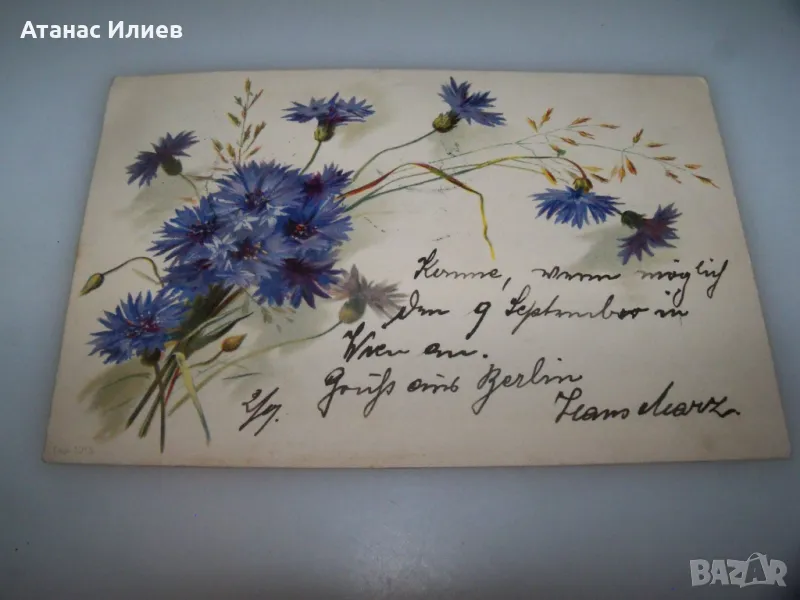 Атанас Илиев
Komme, wenn möglich
den 9 September in
Wien an.
Gruß aus Berlin
2/9. Hans Marz
BAZAR